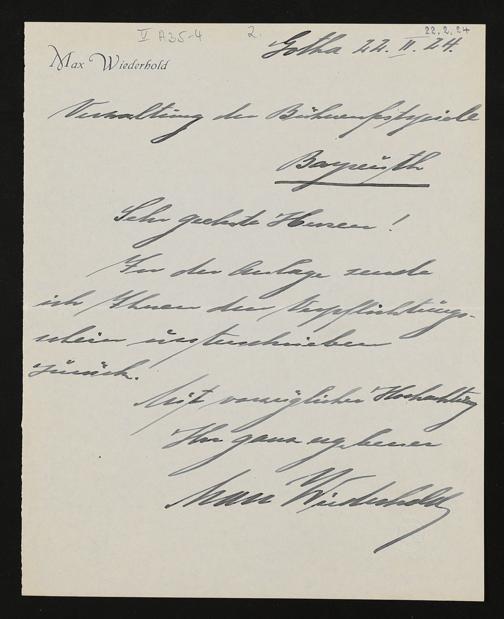 V A35-4 2. 22.2.24
Max Wiederhold
Gotha 22. II. 24.
Verwaltung der Bühnenfestspiele
Bayreuth
Sehr geehrte Herren!
In der Anlage sende
ich Ihnen den Verpflichtungs-
schein unterschrieben
zurück.
Mit vorzüglicher Hochachtung
Ihr ganz ergebener
Max Wiederhold